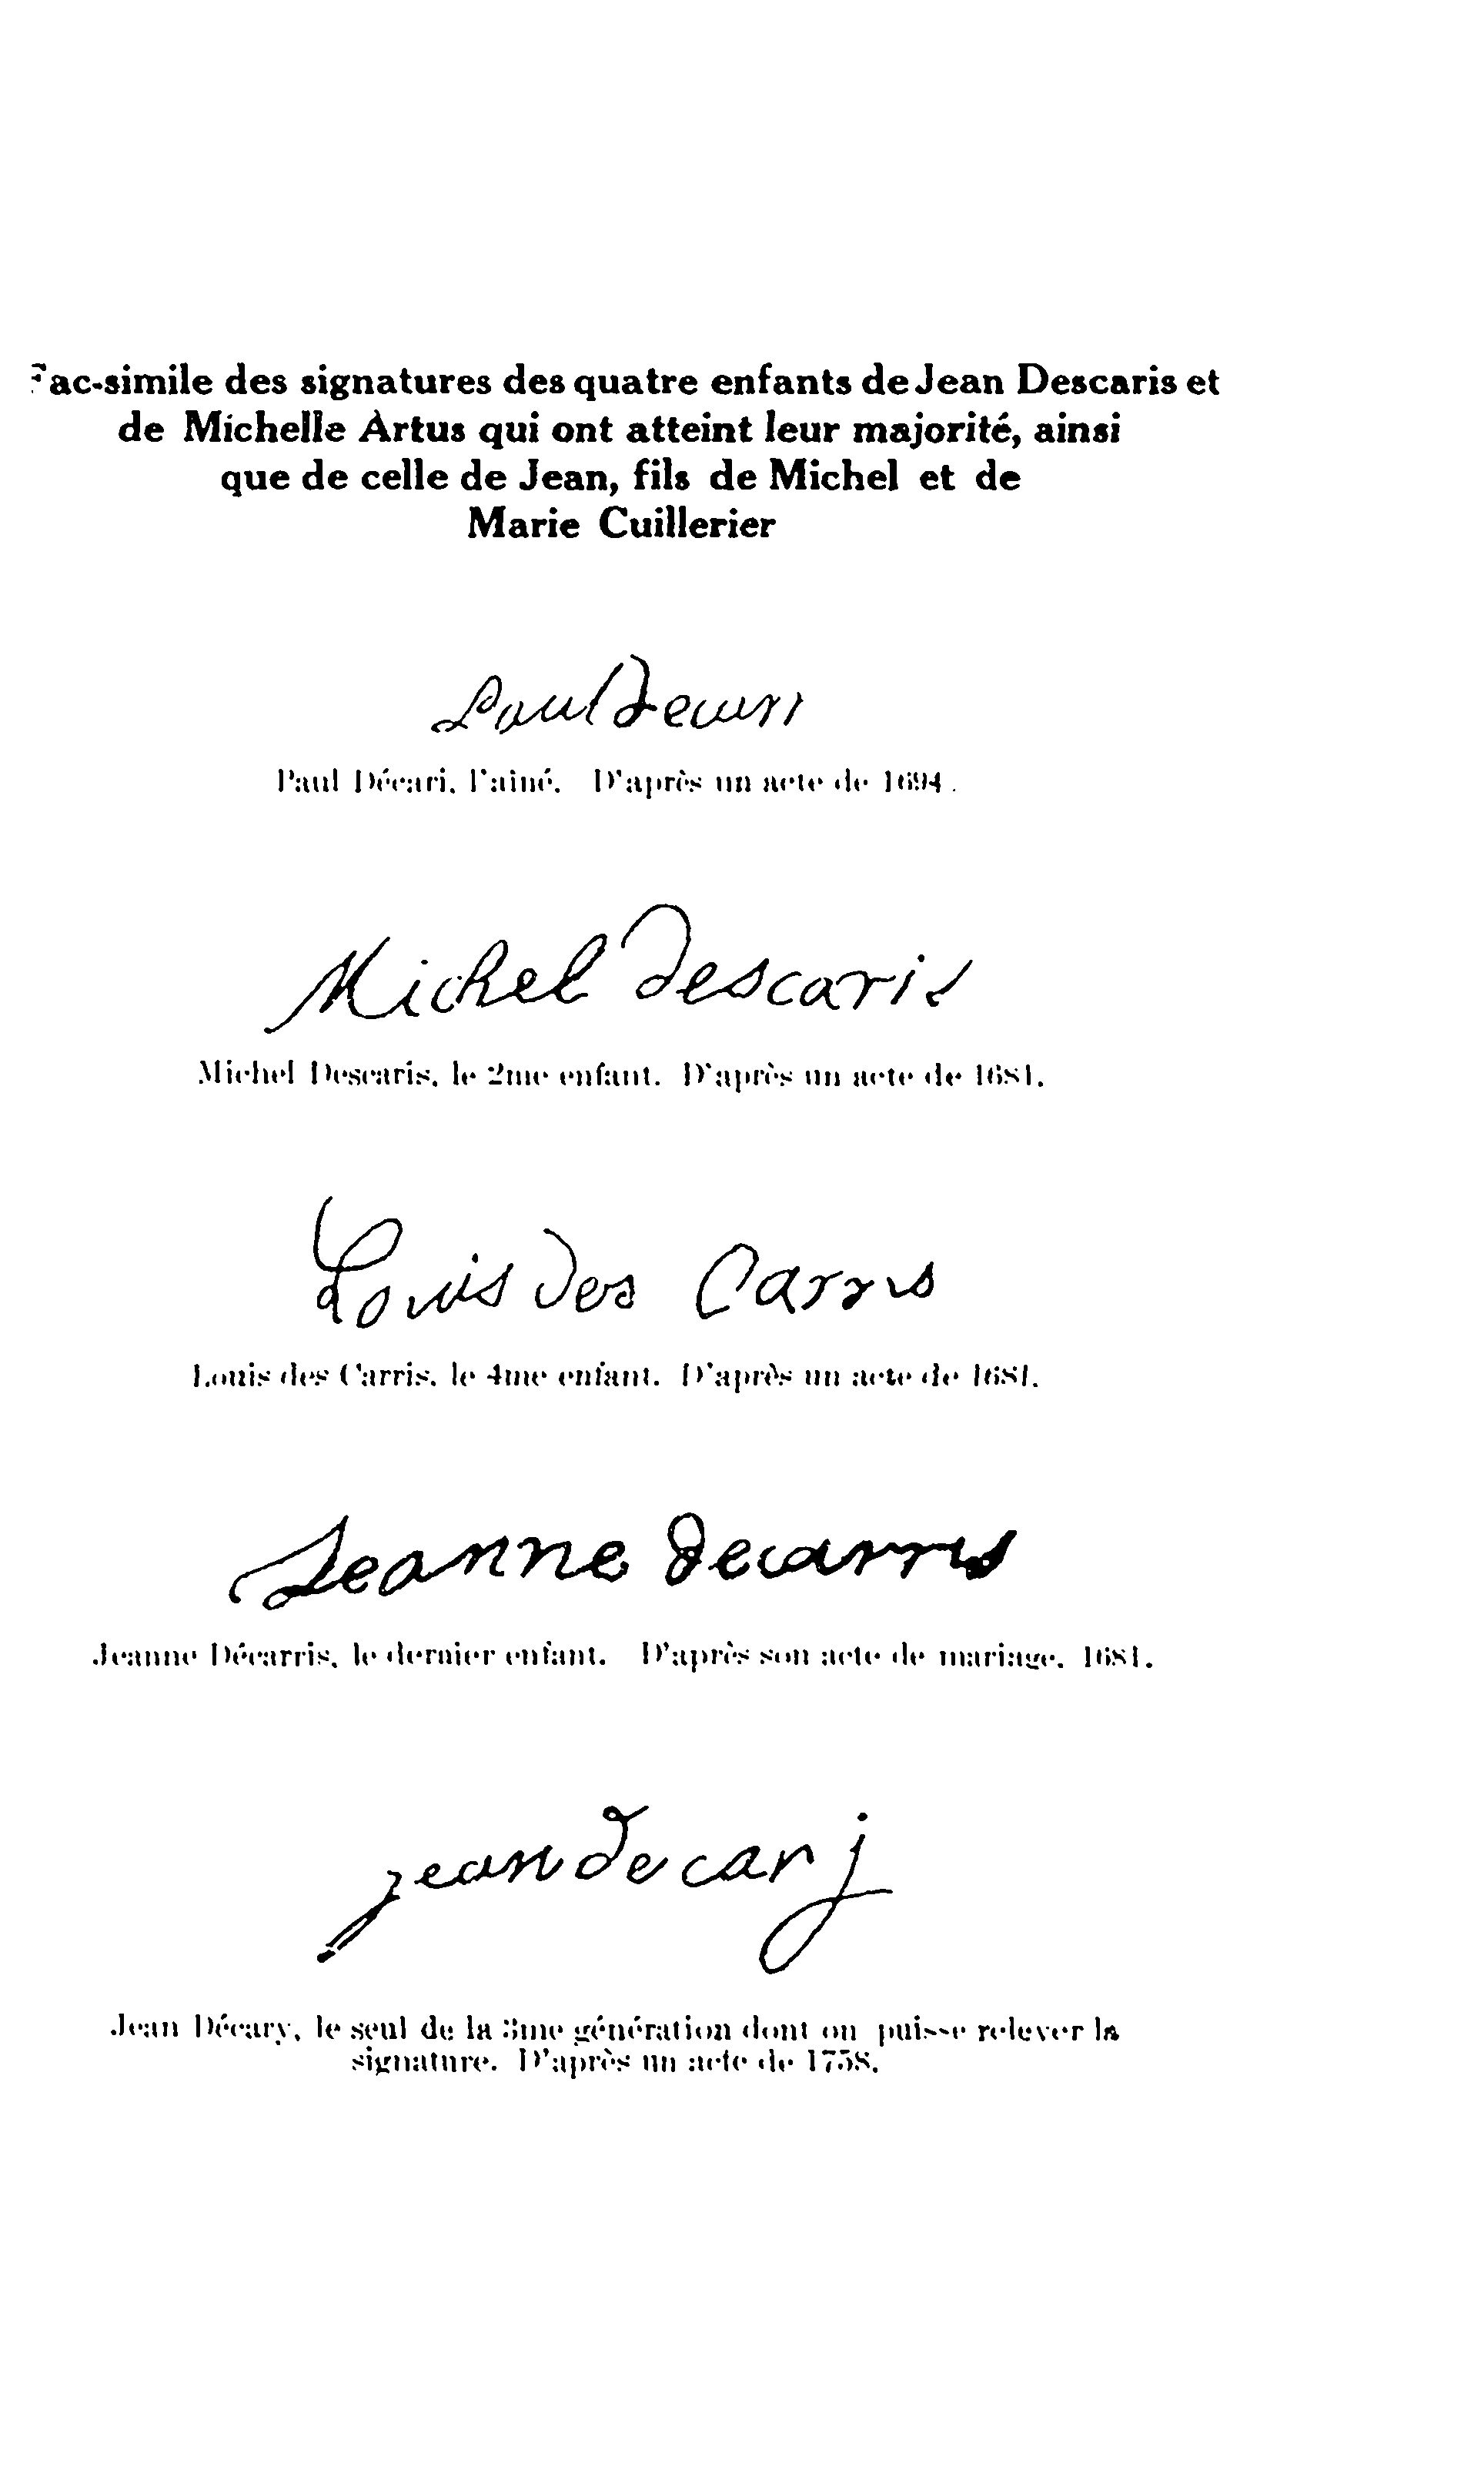 Fac-simile des signatures des quatre enfants de Jean Descaris et
de Michelle Artus qui ont atteint leur majorité, ainsi
que de celle de Jean, fils de Michel et de
Marie Cuillerier
Paul Decari
Paul Décari, l'ainé. D'après un acte de 1694.
Michel Descaris
Michel Descaris, le 2me enfant. D'après un acte de 1681.
Louis des Carris
Louis des Carris, le 4me enfant. D'après un acte de 1681.
Jeanne decarris
Jeanne Décarris, le dernier enfant. D'après son acte de mariage, 1681.
jean decarj
Jean Décary, le seul de la 3me génération dont on puisse relever la
signature. D'après un acte de 1758.